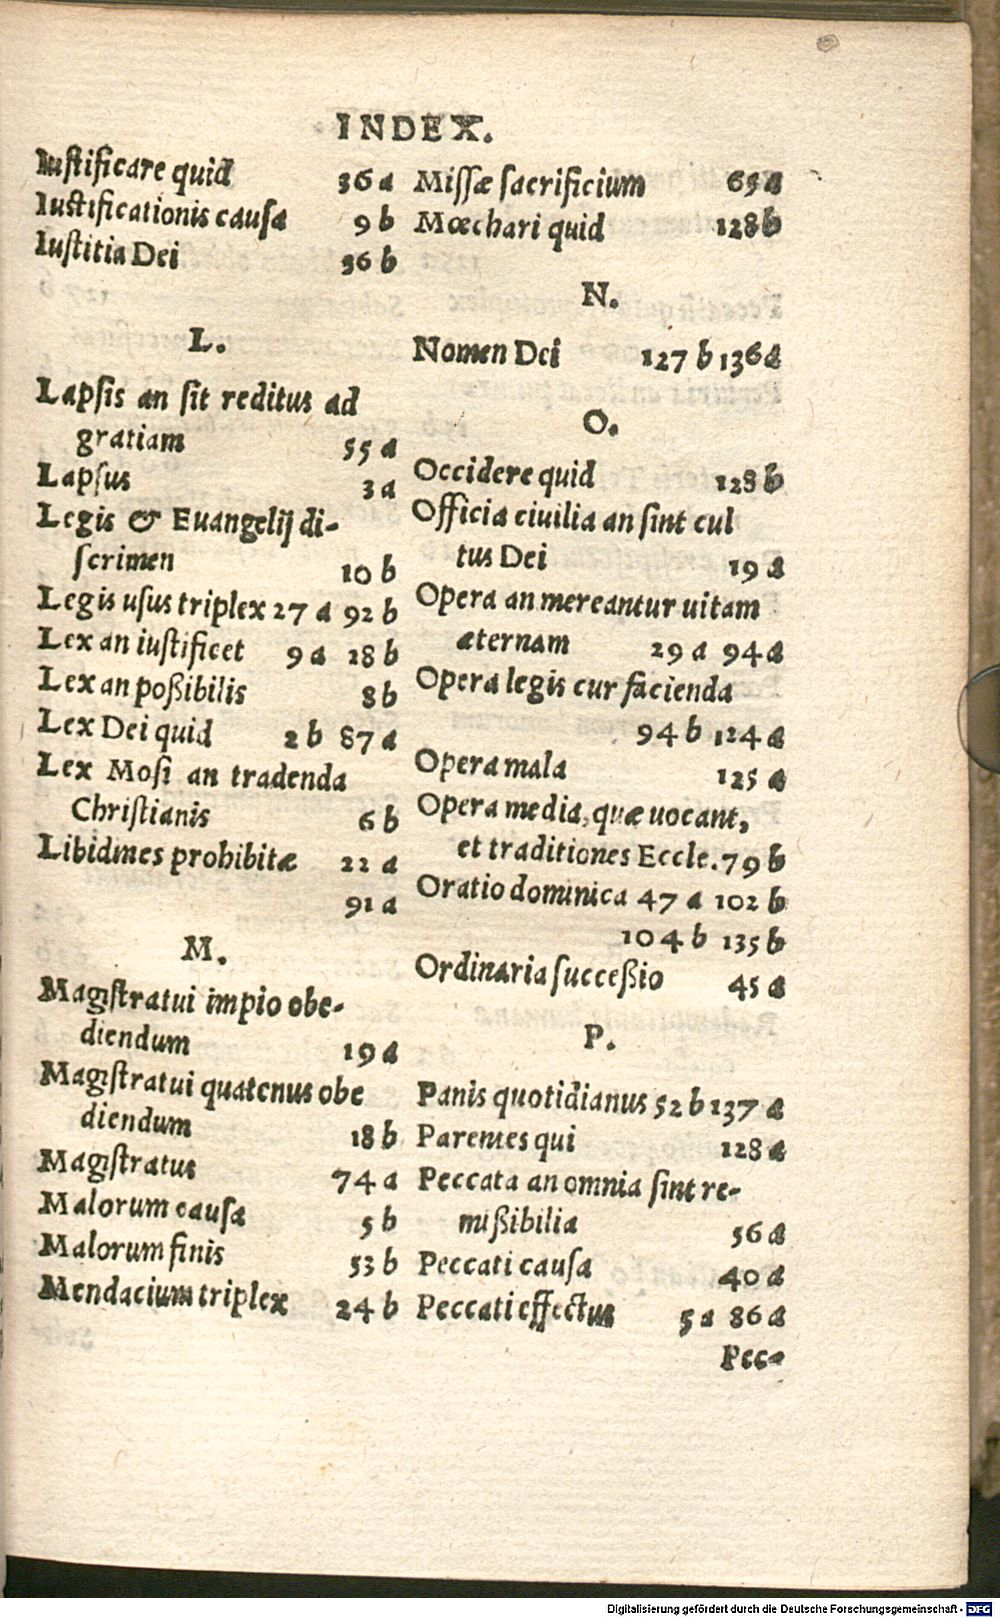 INDEX.
Iustificare quid 36 a
Iustificationis causa 9 b
Iustitia Dei 36 b
L.
Lapsis an sit reditus ad
gratiam 55 a
Lapsus 3 a
Legis & Euangelij di-
scrimen 10 b
Legis usus triplex 27 a 92 b
Lex an iustificet 9 a 18 b
Lex an poßibilis 8 b
Lex Dei quid 2 b 87 a
Lex Mosi an tradenda
Christianis 6 b
Libidines prohibitæ 22 a
91 a
M.
Magistratui impio obe-
diendum 19 a
Magistratui quatenus obe
diendum 18 b
Magistratus 74 a
Malorum causa 5 b
Malorum finis 53 b
Mendacium triplex 24 b
Missæ sacrificium 65 a
Mœchari quid 128 b
N.
Nomen Dei 127 b 136 a
O.
Occidere quid 128 b
Officia ciuilia an sint cul
tus Dei 19 a
Opera an mereantur uitam
æternam 29 a 94 a
Opera legis cur facienda
94 b 124 a
Opera mala 125 a
Opera media, quæ uocant,
et traditiones Eccle. 79 b
Oratio dominica 47 a 102 b
104 b 135 b
Ordinaria succeßio 45 a
P.
Panis quotidianus 52 b 137 a
Parentes qui 128 a
Peccata an omnia sint re-
mißibilia 56 a
Peccati causa 40 a
Peccati effectus 5 a 86 a
Pec-
Digitalisierung gefördert durch die Deutsche Forschungsgemeinschaft - DFG